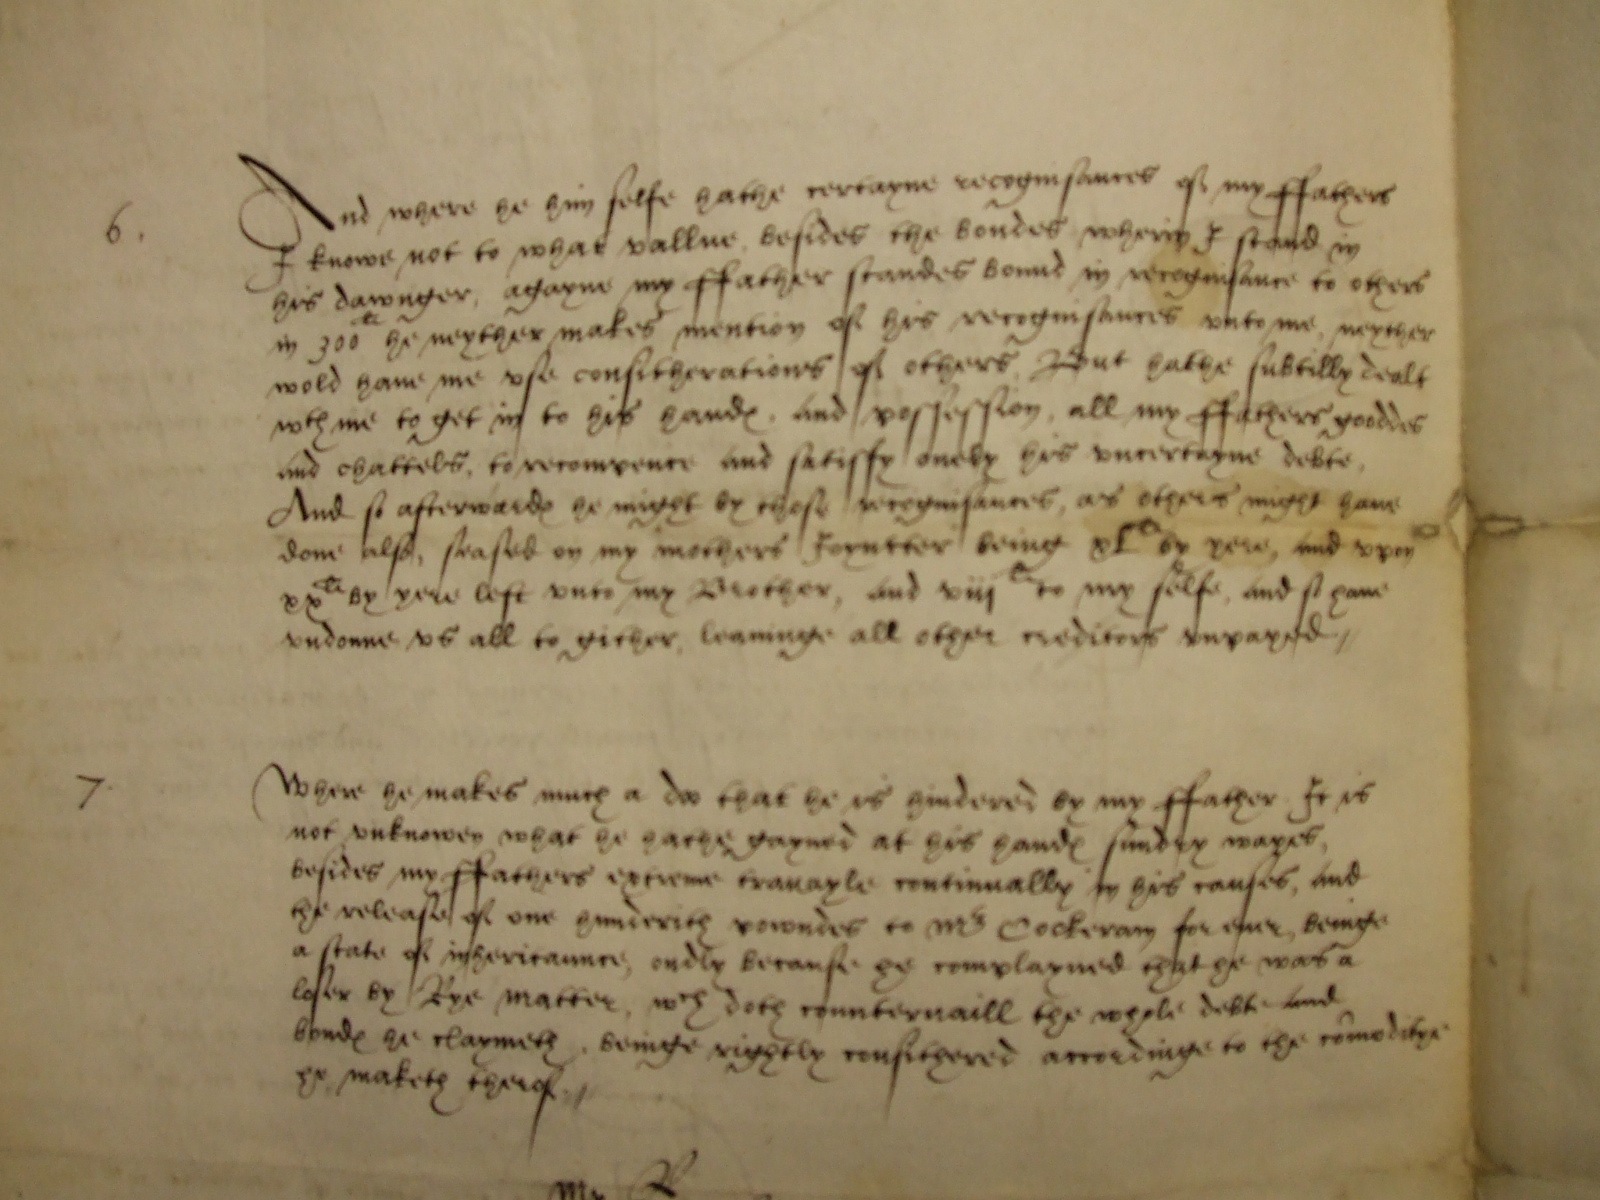 6. And where he him selfe hathe certayne recognisances of my ffathers
I knowe not to what vallue, besides the bondes wherin I stand in
his dawnger, agayne my ffather standes bound in recognisance to others
in 300li he neyther makes mention of his recognisances vnto me, neyther
wold haue me vse consitherations of others, But hathe subtilly dealt
wth me to get in to his handes, and possession, all my ffathers gooddes
and chattels, to recompence and satisffy onely his vncertayne debte,
And so afterwardes he might by those recognisances, as others might haue
done also, seased on my mothers Joyntter being xlli by yere, and vpon
xxli by yere left vnto my Brother, and viijli to my selfe, and so haue
vndonne vs all to gither, leauinge all other creditors vnpayed //
7. Where he makes much a doo that he is hindered by my ffather It is
not vnknowen what he hathe gayned at his handes sundry wayes,
besides my ffathers extreme trauayle continually in his causes, and
the release of one hunderith powndes to Mrs Cockeram for euer, beinge
a state of inheritaunce, ondly because he complayned that he was a
loser by Rye matter, wch doth counteruaill the whole debte and
bondes he claymeth, beinge rightly consithered accordinge to the comoditye
he maketh therof //
My